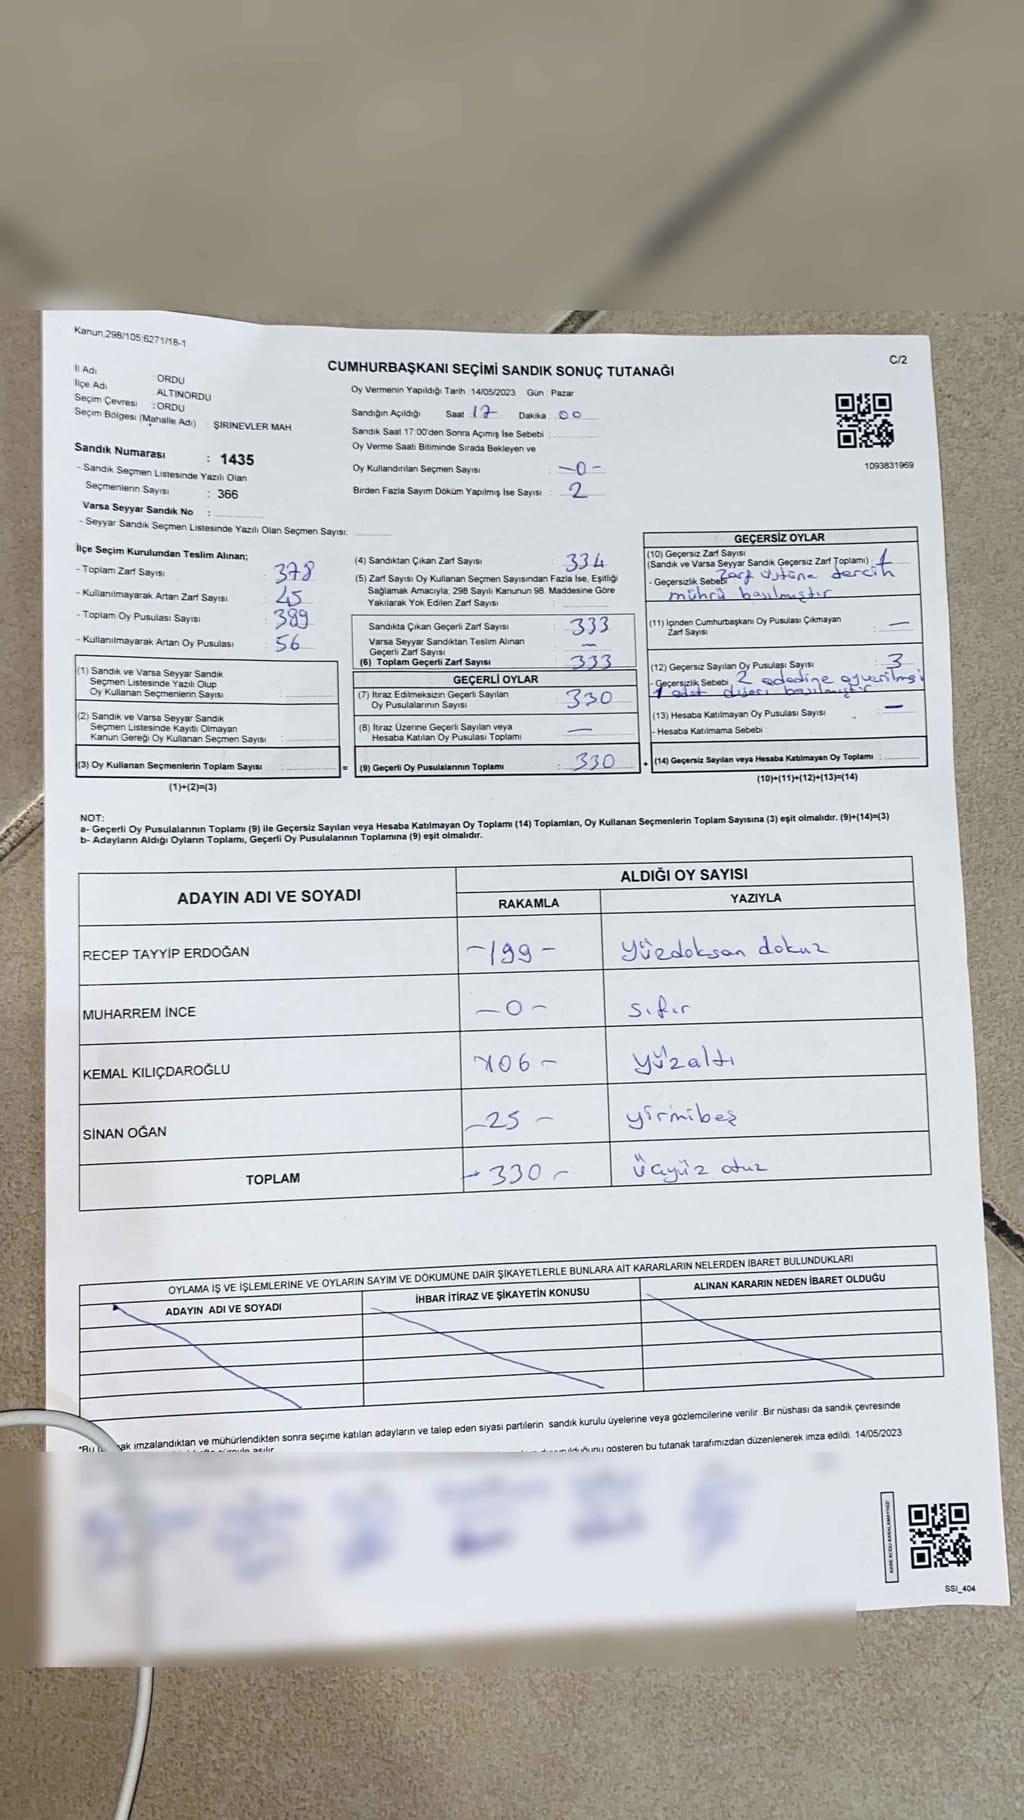 Kanun;298/105;6271/18-1
C/2
CUMHURBAŞKANI SEÇİMİ SANDIK SONUÇ TUTANAĞI
İl Adı : ORDU
İlçe Adı : ALTINORDU
Seçim Çevresi : ORDU
Seçim Bölgesi (Mahalle Adı) : ŞİRİNEVLER MAH.
Sandık Numarası : 1435
- Sandık Seçmen Listesinde Yazılı Olan
Seçmenlerin Sayısı : 366
Varsa Seyyar Sandık No :
- Seyyar Sandık Seçmen Listesinde Yazılı Olan Seçmen Sayısı:
Oy Vermenin Yapıldığı Tarih :14/05/2023 Gün : Pazar
Sandığın Açıldığı Saat 17 Dakika : 00
Sandık Saat 17:00'den Sonra Açımış İse Sebebi :
Oy Verme Saati Bitiminde Sırada Bekleyen ve
Oy Kullandırılan Seçmen Sayısı : -0-
Birden Fazla Sayım Döküm Yapılmış İse Sayısı : 2
1093831969
İlçe Seçim Kurulundan Teslim Alınan;
- Toplam Zarf Sayısı : 378
- Kullanılmayarak Artan Zarf Sayısı : 45
- Toplam Oy Pusulası Sayısı : 389
- Kullanılmayarak Artan Oy Pusulası : 56
(1) Sandık ve Varsa Seyyar Sandık
Seçmen Listesinde Yazılı Olup
Oy Kullanan Seçmenlerin Sayısı :
(2) Sandık ve Varsa Seyyar Sandık
Seçmen Listesinde Kayıtlı Olmayan
Kanun Gereği Oy Kullanan Seçmen Sayısı :
(3) Oy Kullanan Seçmenlerin Toplam Sayısı : =
(1)+(2)=(3)
(4) Sandıktan Çıkan Zarf Sayısı : 334
(5) Zarf Sayısı Oy Kullanan Seçmen Sayısından Fazla İse, Eşitliği
Sağlamak Amacıyla, 298 Sayılı Kanunun 98. Maddesine Göre
Yakılarak Yok Edilen Zarf Sayısı :
Sandıkta Çıkan Geçerli Zarf Sayısı : 333
Varsa Seyyar Sandıktan Teslim Alınan
Geçerli Zarf Sayısı : -
(6) Toplam Geçerli Zarf Sayısı : 333
GEÇERLİ OYLAR
(7) İtiraz Edilmeksizin Geçerli Sayılan
Oy Pusulalarının Sayısı : 330
(8) İtiraz Üzerine Geçerli Sayılan veya
Hesaba Katılan Oy Pusulası Toplamı : -
(9) Geçerli Oy Pusulalarının Toplamı : 330 +
GEÇERSİZ OYLAR
(10) Geçersiz Zarf Sayısı
(Sandık ve Varsa Seyyar Sandık Geçersiz Zarf Toplamı) : 1
- Geçersizlik Sebebi Zarf üstüne tercih
mührü basılmıştır
(11) İçinden Cumhurbaşkanı Oy Pusulası Çıkmayan
Zarf Sayısı : -
(12) Geçersiz Sayılan Oy Pusulası Sayısı : 3
- Geçersizlik Sebebi 2 adedine oy verilmiş
1 adet dışarı basılmıştır
(13) Hesaba Katılmayan Oy Pusulası Sayısı : -
- Hesaba Katılmama Sebebi :
(14) Geçersiz Sayılan veya Hesaba Katılmayan Oy Toplamı :
(10)+(11)+(12)+(13)=(14)
NOT:
a- Geçerli Oy Pusulalarının Toplamı (9) ile Geçersiz Sayılan veya Hesaba Katılmayan Oy Toplamı (14) Toplamları, Oy Kullanan Seçmenlerin Toplam Sayısına (3) eşit olmalıdır. (9)+(14)=(3)
b- Adayların Aldığı Oyların Toplamı, Geçerli Oy Pusulalarının Toplamına (9) eşit olmalıdır.
ADAYIN ADI VE SOYADI ALDIĞI OY SAYISI
RAKAMLA YAZIYLA
RECEP TAYYİP ERDOĞAN -199- yüzdoksan dokuz
MUHARREM İNCE -0- sıfır
KEMAL KILIÇDAROĞLU 106- yüzaltı
SİNAN OĞAN -25- yirmibeş
TOPLAM -330- üçyüz otuz
OYLAMA İŞ VE İŞLEMLERİNE VE OYLARIN SAYIM VE DÖKÜMÜNE DAİR ŞİKAYETLERLE BUNLARA AİT KARARLARIN NELERDEN İBARET BULUNDUKLARI
ADAYIN ADI VE SOYADI İHBAR İTİRAZ VE ŞİKAYETİN KONUSU ALINAN KARARIN NEDEN İBARET OLDUĞU
*Bu imzalandıktan ve mühürlendikten sonra seçime katılan adayların ve talep eden siyasi partilerin sandık kurulu üyelerine veya gözlemcilerine verilir. Bir nüshası da sandık çevresinde
gösteren bu tutanak tarafımızdan düzenlenerek imza edildi. 14/05/2023
KARE KODU KARALAMAYINIZ!
SSI_404